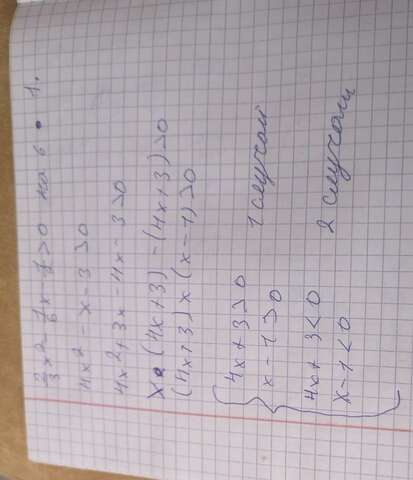 2/3x² - 1/6x - 1/2 > 0 на 6 • 1.
4x² - x - 3 > 0
4x² + 3x - 4x - 3 > 0
x • (4x + 3) - (4x + 3) > 0
(4x + 3) × (x - 1) > 0
4x + 3 > 0
x - 1 > 0 1 случай
4x + 3 < 0
x - 1 < 0 2 случай